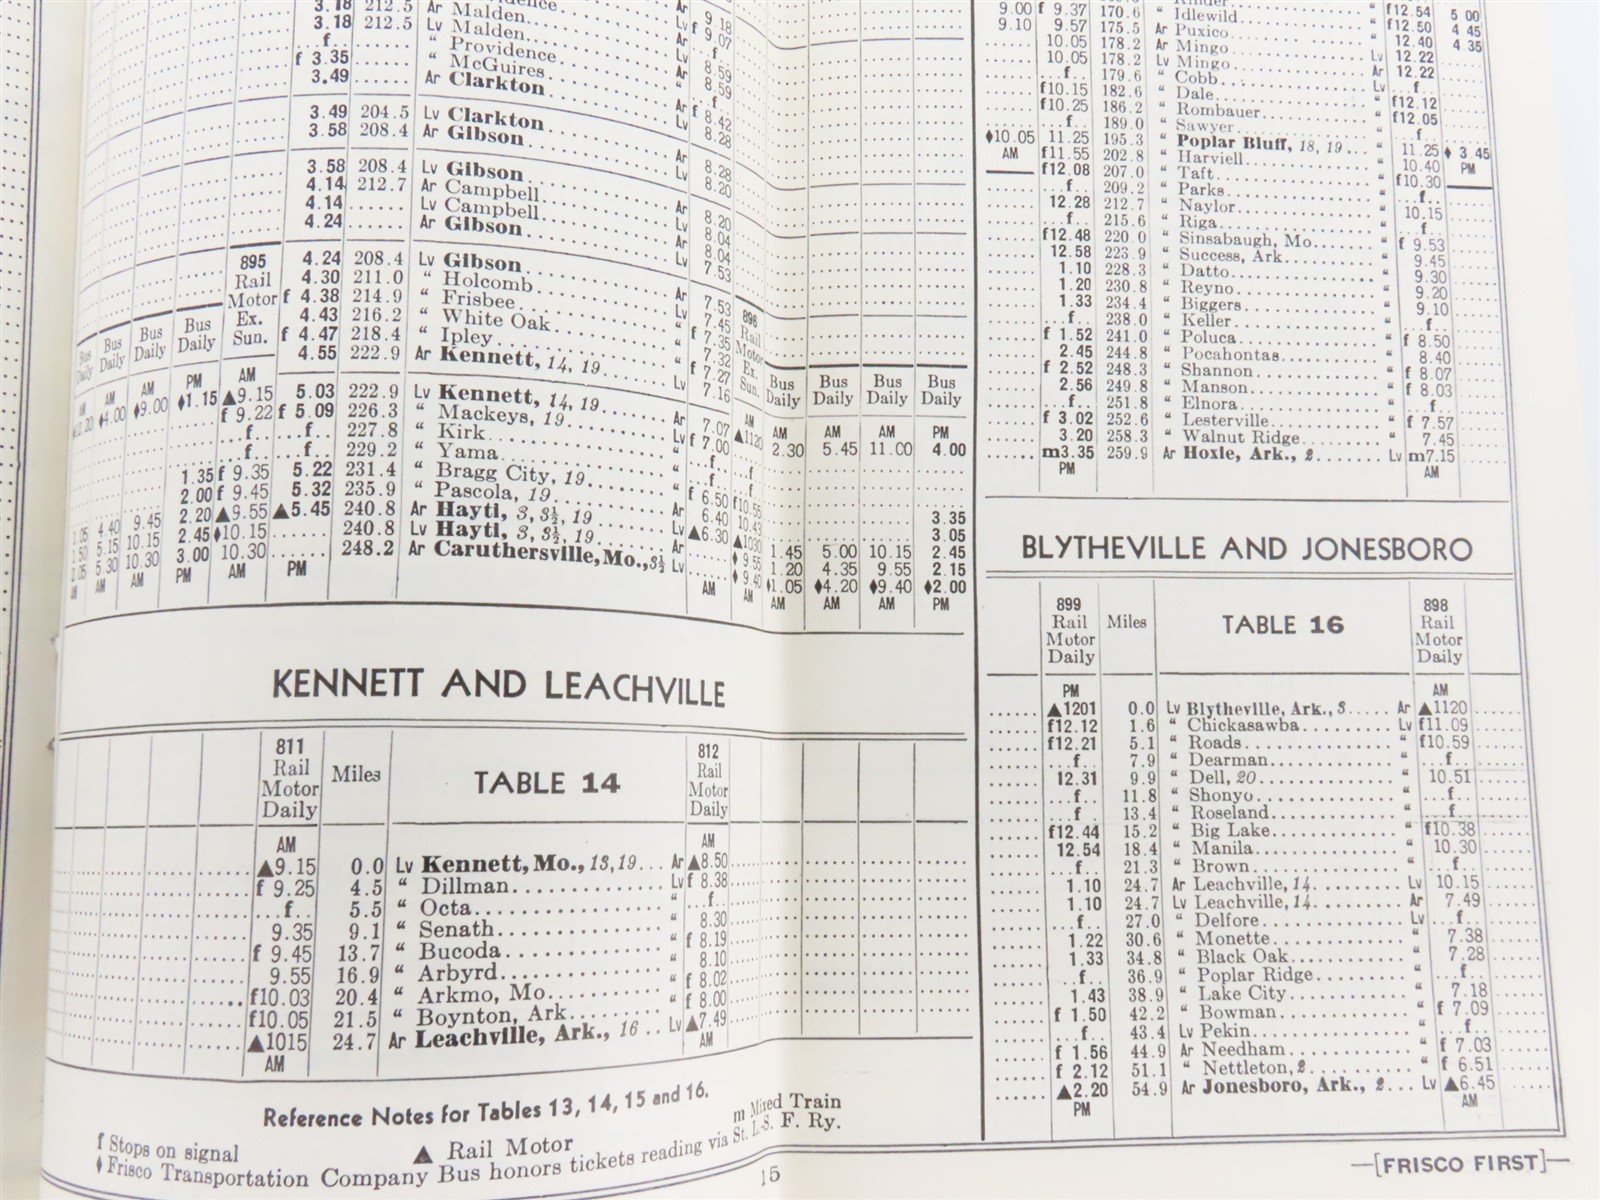 3.18 212.5 Ar Malden 9.18
3.18 212.5 Lv Malden Lv f 9.07
f “ Providence Ar f
f 3.35 “ McGuires Lv 8.59
3.49 Ar Clarkton Ar 8.59
f
3.49 204.5 Lv Clarkton Ar f 8.42
3.58 208.4 Ar Gibson Lv 8.28
3.58 208.4 Lv Gibson Ar 8.28
4.14 212.7 Ar Campbell Lv 8.20
4.14 Lv Campbell Ar 8.20
4.24 Ar Gibson 8.04
8.04
7.53
895 Rail Motor Ex. Sun.
896 Rail Motor Ex. Sun.
4.24 208.4 Lv Gibson Ar 7.53
4.30 211.0 “ Holcomb Lv 7.45
f 4.38 214.9 “ Frisbee “ f 7.35
4.43 216.2 “ White Oak “ 7.32
f 4.47 218.4 “ Ipley “ f 7.27
4.55 222.9 Ar Kennett, 14, 19 Lv 7.16
Bus Daily Bus Daily Bus Daily Bus Daily
Bus Daily Bus Daily Bus Daily Bus Daily
AM AM AM PM AM
♦4.00 ♦9.00 ♦1.15 ▲9.15 5.03 222.9 Lv Kennett, 14, 19 Ar 7.07 ▲1120 2.30 5.45 11.00 4.00
f 9.22 f 5.09 226.3 “ Mackeys, 19 Lv f 7.00
f f 227.8 “ Kirk “ f f
f f 229.2 “ Yama “ f f
1.35 f 9.35 5.22 231.4 “ Bragg City, 19 “ f 6.50 f10.55
2.00 f 9.45 5.32 235.9 “ Pascola, 19 “ 6.40 10.43 3.35
1.05 4.40 9.45 2.20 ▲9.55 ▲5.45 240.8 Ar Hayti, 3, 3½, 19 Lv ▲6.30 ▲1030 1.45 5.00 10.15 3.05
1.50 5.15 10.15 2.45 ♦10.15 240.8 Lv Hayti, 3, 3½, 19 Ar ♦9.55 1.20 4.35 9.55 2.45
2.05 5.30 10.30 3.00 10.30 248.2 Ar Caruthersville, Mo., 3½ Lv ♦9.40 ♦1.05 ♦4.20 ♦9.40 2.15
♦2.00
AM AM AM PM AM PM AM AM AM AM AM PM
KENNETT AND LEACHVILLE
811 Rail Motor Daily Miles TABLE 14 812 Rail Motor Daily
AM AM
▲9.15 0.0 Lv Kennett, Mo., 13,19 Ar ▲8.50
f 9.25 4.5 “ Dillman Lv f 8.38
f 5.5 “ Octa “ f
9.35 9.1 “ Senath “ 8.30
f 9.45 13.7 “ Bucoda “ f 8.19
9.55 16.9 “ Arbyrd “ 8.10
f10.03 20.4 “ Arkmo, Mo. “ f 8.02
f10.05 21.5 “ Boynton, Ark “ f 8.00
▲1015 24.7 Ar Leachville, Ark., 16 Lv ▲7.49
AM AM
Reference Notes for Tables 13, 14, 15 and 16.
f Stops on signal ▲ Rail Motor m Mixed Train
♦Frisco Transportation Company Bus honors tickets reading via St. L.-S. F. Ry.
15
9.00 f 9.37 170.6 “ Idlewild “ f12.54 5 00
9.10 9.57 175.5 Ar Puxico “ f12.50 4 45
10.05 178.2 Ar Mingo Lv 12.40 4 35
10.05 178.2 Lv Mingo Ar 12.22
f 179.6 “ Cobb Lv 12.22
f10.15 182.6 “ Dale “ f
f10.25 186.2 “ Rombauer “ f12.12
f 189.0 “ Sawyer “ f12.05
♦10.05 11.25 195.3 “ Poplar Bluff, 18, 19 “ f
AM f11.55 202.8 “ Harviell “ 11.25 ♦ 3 45
f12.08 207.0 “ Taft “ 10.40 PM
f 209.2 “ Parks “ f10.30
12.28 212.7 “ Naylor “ f
f 215.6 “ Riga “ 10.15
f12.48 220.0 “ Sinsabaugh, Mo. “ f
12.58 223.9 “ Success, Ark “ f 9.53
1.10 228.3 “ Datto “ 9.45
1.20 230.8 “ Reyno “ 9.30
1.33 234.4 “ Biggers “ 9.20
f 238.0 “ Keller “ 9.10
f 1.52 241.0 “ Poluca “ f
2.45 244.8 “ Pocahontas “ f 8.50
f 2.52 248.3 “ Shannon “ 8.40
2.56 249.8 “ Manson “ f 8.07
f 251.8 “ Elnora “ f 8.03
f 3.02 252.6 “ Lesterville “ f
3.20 258.3 “ Walnut Ridge “ f 7.57
m3.35 259.9 Ar Hoxie, Ark., 2 Lv 7.45
m7.15
PM AM
BLYTHEVILLE AND JONESBORO
899 Rail Motor Daily Miles TABLE 16 898 Rail Motor Daily
PM AM
▲1201 0.0 Lv Blytheville, Ark., 3 Ar ▲1120
f12.12 1.6 “ Chickasawba Lv f11.09
f12.21 5.1 “ Roads “ f10.59
f 7.9 “ Dearman “ f
12.31 9.9 “ Dell, 20 “ 10.51
f 11.8 “ Shonyo “ f
f 13.4 “ Roseland “ f
f12.44 15.2 “ Big Lake “ f10.38
12.54 18.4 “ Manila “ 10.30
f 21.3 “ Brown “ f
1.10 24.7 Ar Leachville, 14 Lv 10.15
1.10 24.7 Lv Leachville, 14 Ar 7.49
f 27.0 “ Delfore Lv f
1.22 30.6 “ Monette “ 7.38
1.33 34.8 “ Black Oak “ 7.28
f 36.9 “ Poplar Ridge “ f
1.43 38.9 “ Lake City “ 7.18
f 1.50 42.2 “ Bowman “ f 7.09
f 43.4 Lv Pekin “ f
f 1.56 44.9 Ar Needham “ f 7.03
f 2.12 51.1 “ Nettleton, 2 “ f 6.51
▲2.20 54.9 Ar Jonesboro, Ark., 2 Lv ▲6.45
PM AM
[FRISCO FIRST]